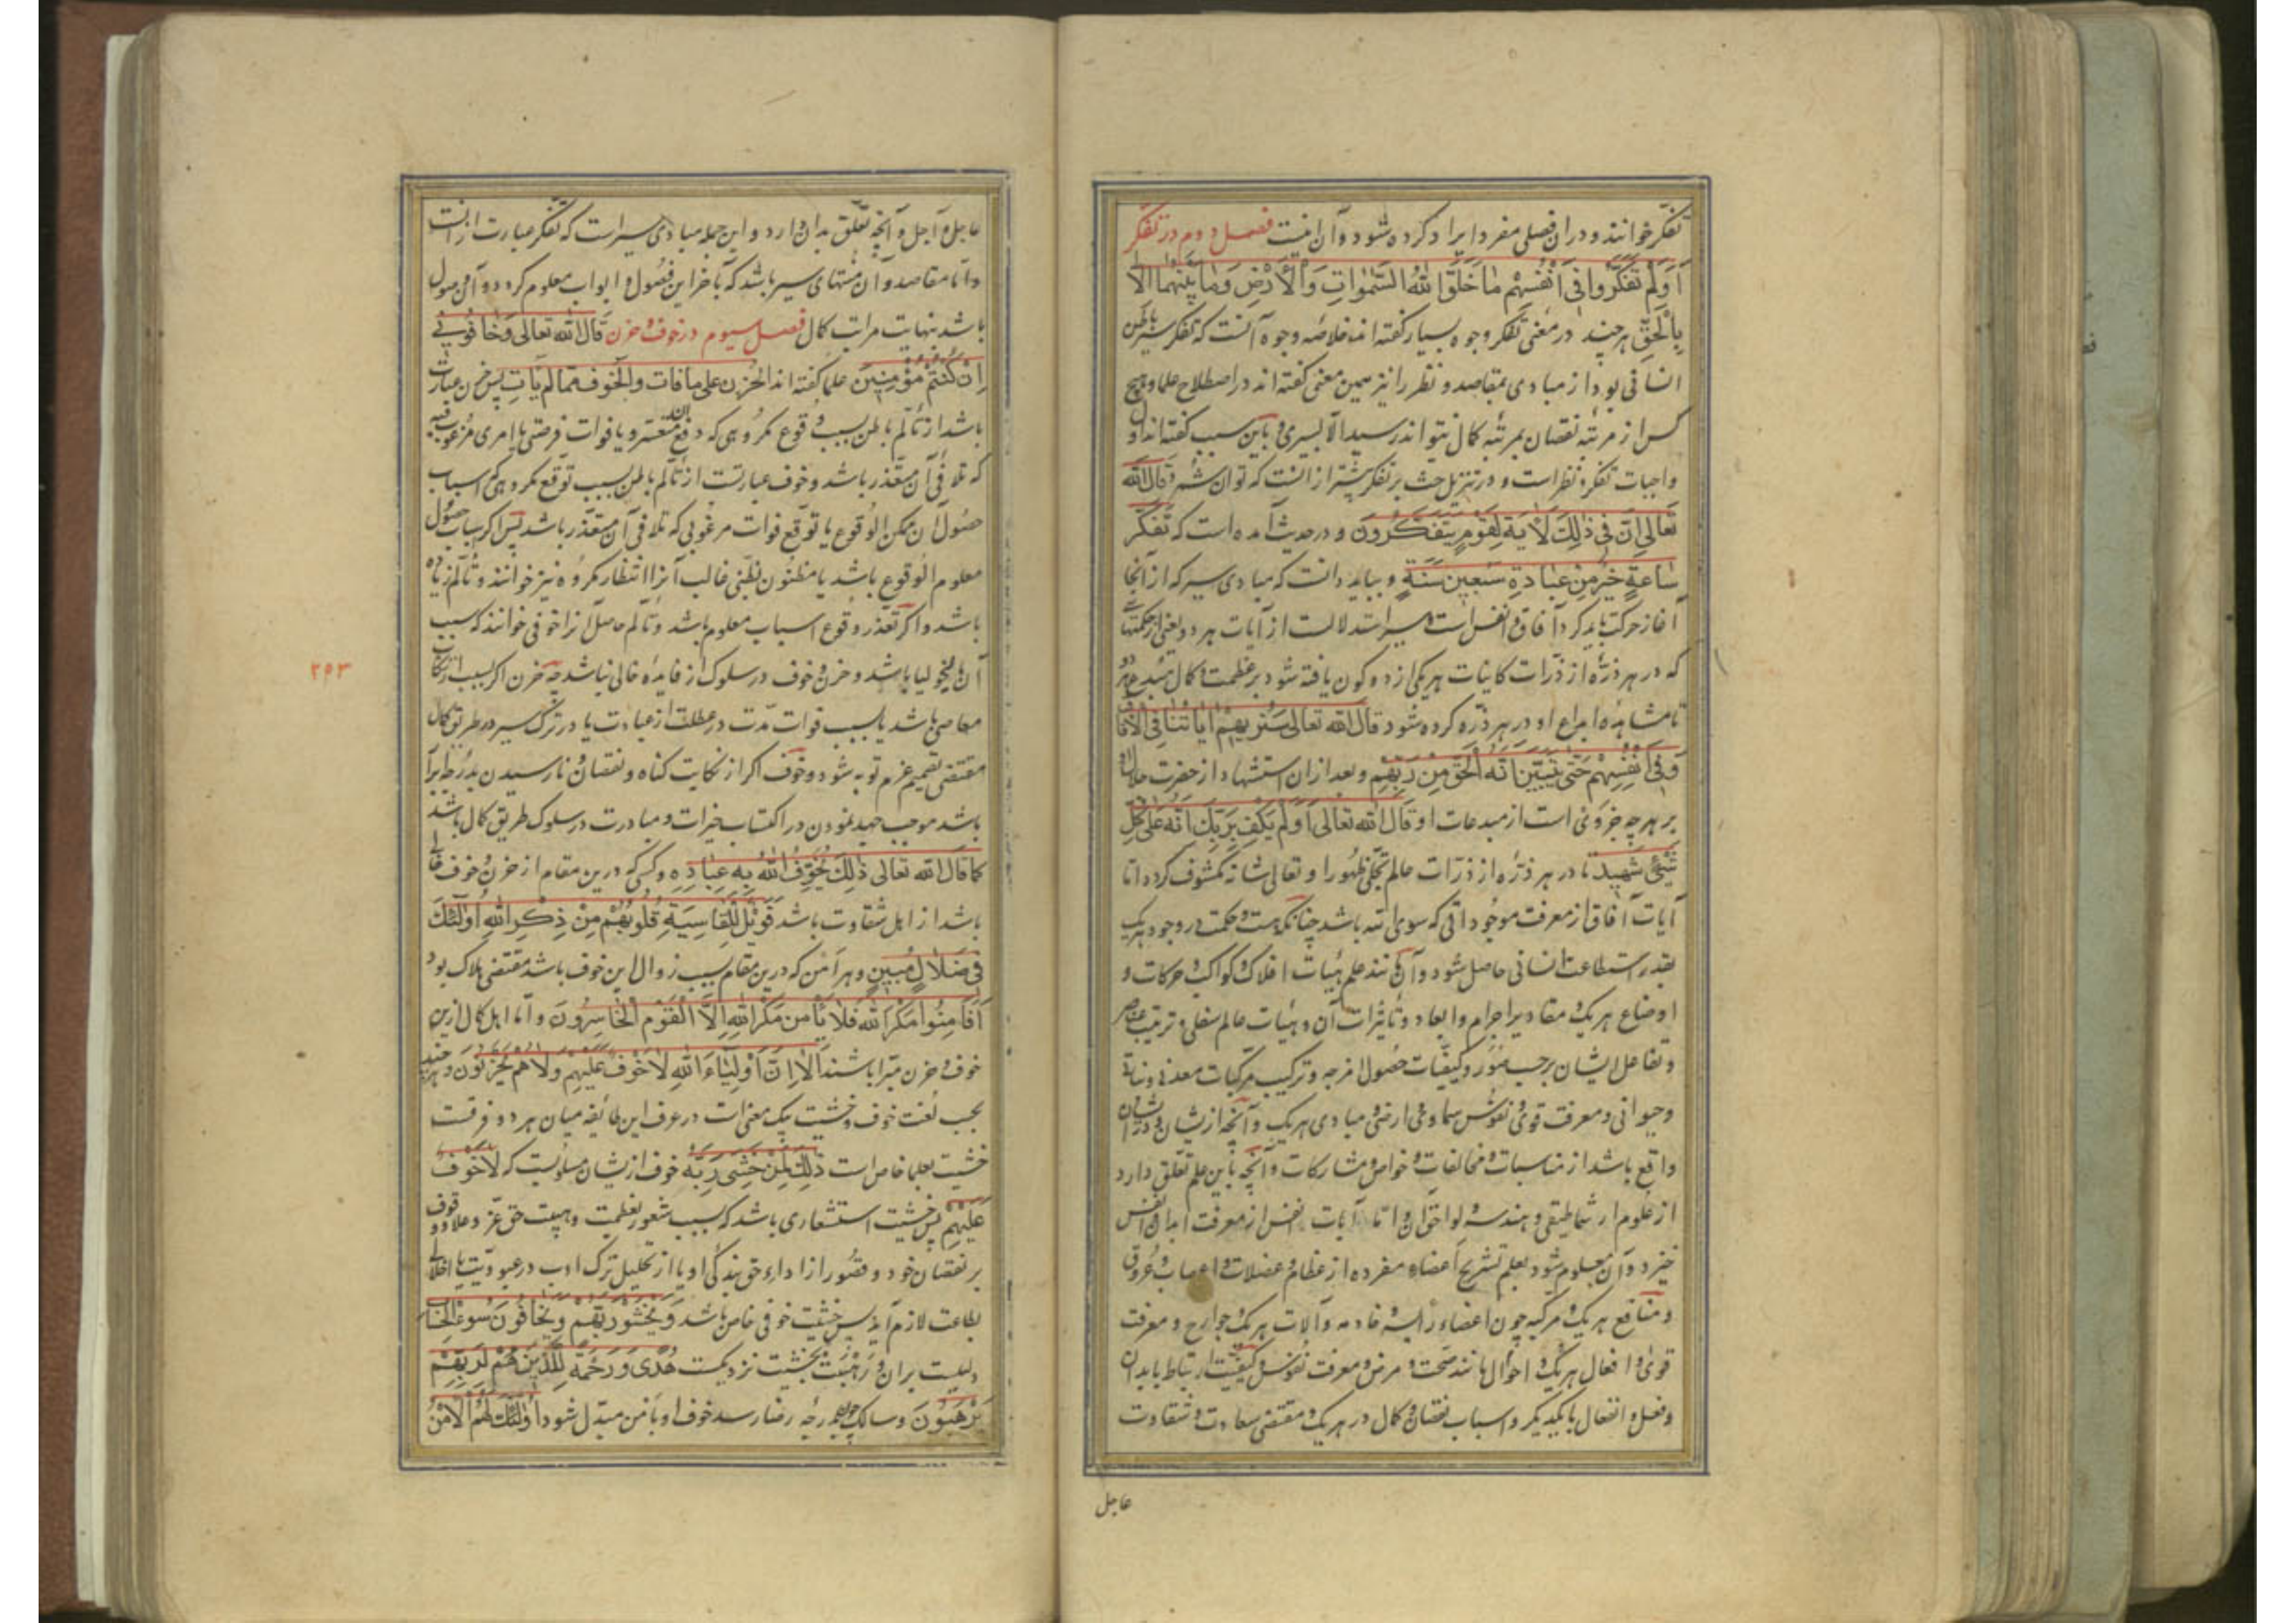 تفکر خوانند و در ان فصلی مفرد ایراد کرده شود و آن اینست فصل دوم در تفکر
اَوَلَمْ یَتَفَکَّرُوا فی اَنْفُسِهِمْ مٰا خَلَقَ اللهُ السَّمٰواتِ وَالْاَرْضَ وَمٰا بَیْنَهُمٰا اِلّا
بِالْحَقِّ هر چند در معنی تفکر وجوه بسیار کفته اند خلاصه وجوه آنست که تفکر سیر باطن
انسانی بود از مبادی بمقاصد و نظر را نیز همین معنی کفته اند در اصطلاح علما و هیچ
کس از مرتبه نقصان بمرتبه کمال نتواند رسید الا بسیری و باین سبب کفته اند اول
واجبات تفکر و نظر است و در تنزیل حث بر تفکر بیشتر از انست که توان شمرد قال الله
تعالی اِنَّ فی ذٰلِکَ لَاٰیَةً لِقَوْمٍ یَتَفَکَّرُونَ و در حدیث آمده است که تَفَکُّر
سٰاعَةٍ خَیْرٌ مِنْ عِبٰادَةِ سَبْعینَ سَنَةٍ و بباید دانست که مبادی سیر که از آنجا
آغاز حرکت باید کرد آفاق و انفس است و سیر استدلالست از آیات هر دو یعنی از حکمتها
که در هر ذرّه از ذرّات کاینات هر یکی از دو کون یافته شود بر عظمت و کمال مبدع هر دو
تا مشاهده ابداع او در هر ذرّه کرده شود قال الله تعالی سَنُریهِمْ اٰیٰاتِنٰا فِی الْاٰفٰاقِ
وَفی اَنْفُسِهِمْ حَتّٰی یَتَبَیَّنَ اَنَّهُ الْحَقُّ مِنْ رَبِّهِمْ و بعد از ان استشهاد از حضرت جلال او
بر هر چه جز وی است از مبدعات او قال الله تعالی اَوَلَمْ یَکْفِ بِرَبِّکَ اَنَّهُ عَلٰی کُلِّ
شَیْءٍ شَهیدٌ تا در هر ذرّه از ذرّات عالم تجلی ظهور او تعالی شانه مکشوف کردد اما
آیات آفاق از معرفت موجوداتی که سوی الله باشد چنانکه هست و حکمت در وجود هر یک
بقدر استطاعت انسانی حاصل شود و آن مانند علم هیأت افلاک و کواکب و حرکات و
اوضاع هر یک و مقادیر اجرام و ابعاد و تأثیرات آن و هیئات عالم سفلی و ترتیب عناصر
و تفاعل ایشان برحسب صور و کیفیّات و حصول امزجه و ترکیب مرکّبات معدنی و نباتی
و حیوانی و معرفت قوی و نفوس سماوی و ارضی و مبادی هر یک و آنچه از یشان و در یشان
واقع باشد از مناسبات و مخالفات و خواص و مشارکات و آنچه باین علم تعلق دارد
از علوم ارثماطیقی و هندسه و لواحق آن و اما آیات انفس از معرفت ابدان و انفس
خیزد و آن معلوم شود بعلم تشریح اعضاء مفرده از عظام و عضلات و اعصاب و عروق
و منافع هر یک و مرکبه چون اعضاء رئیسه و خادمه و آلات هر یک و جوارح و معرفت
قوی و افعال هر یک و احوال مانند صحت و مرض و معرفت نفوس و کیفیّت ارتباط بابدان
و فعل و انفعال با یکدیکر و اسباب نقصان و کمال در هر یک و مقتضی سعادت و شقاوت
عاجل
عاجل و آجل و آنچه تعلّق بدان دارد و این جمله مبادی سیر است که تفکر عبارت از انست
و اما مقاصد و آن منتهای سیر باشد که بآخر این فصول و ابواب معلوم کردد و آن وصول
باشد بنهایت مراتب کمال فصل سیوم در خوف و حزن قال الله تعالی وَخٰافُونی
اِنْ کُنْتُمْ مُؤْمِنینَ علما کفته اند الحُزن علی ما فات والخوف ممّا لم یَأتِ پس حزن عبارت
باشد از تألّم باطن بسبب وقوع مکروهی که دفع آن متعسر و یا فوات فرصتی یا امری مرغوب فیه
که تلافی آن متعذّر باشد و خوف عبارتست از تألّم باطن بسبب توقّع مکروهی که اسباب
حصول آن ممکن الوقوع یا توقّع فوات مرغوبی که تلافی آن متعذّر باشد پس اکر اسباب حصول
معلوم الوقوع باشد یا مظنون بظنّی غالب آنرا انتظار مکروه نیز خوانند و تألّم زیاده
باشد و اکر تعذّر وقوع اسباب معلوم باشد و تألّم حاصل آنرا خوفی خوانند که سبب
آن مالیخولیا باشد و حزن و خوف در سلوک از فایده خالی نباشد چه حزن اکر بسبب ارتکاب
معاصی باشد یا بسبب فوات مدّت در عطلت از عبادت یا در ترک سیر در طریق کمال
مقتضی تصمیم عزم توبه شود و خوف اکر از نکایت کناه و نقصان و نارسیدن بدرجه ابرار
باشد موجب جهد نمودن در اکتساب خیرات و مبادرت در سلوک طریق کمال باشد
کما قال الله تعالی ذٰلِکَ یُخَوِّفُ اللهُ بِهِ عِبٰادَهُ و کسی که درین مقام از حزن و خوف خالی
باشد از اهل شقاوت باشد فَوَیْلٌ لِلْقٰاسِیَةِ قُلُوبُهُمْ مِنْ ذِکْرِ اللهِ اُولٰئِکَ
فی ضَلٰالٍ مُبینٍ و هر امن که درین مقام بسبب زوال این خوف باشد مقتضی هلاک بود
اَفَاَمِنُوا مَکْرَ اللهِ فَلٰا یَأْمَنُ مَکْرَ اللهِ اِلَّا الْقَوْمُ الْخٰاسِرُونَ و اما اهل کمال ازین
خوف و حزن مبرّا باشند اَلٰا اِنَّ اَوْلِیٰاءَ اللهِ لٰا خَوْفٌ عَلَیْهِمْ وَلٰا هُمْ یَحْزَنُونَ و هر چند
بحسب لغت خوف و خشیت بیک معنی است در عرف این طائفه میان هر دو فرقست
خشیت بعلما خاص است ذٰلِکَ لِمَنْ خَشِیَ رَبَّهُ خوف از یشان مسلوبست که لٰا خَوْفٌ
عَلَیْهِمْ پس خشیت استشعاری باشد که بسبب شعور بعظمت و هیبت حق عزّ و علا و وقوف
بر نقصان خود و قصور از اداء حق بندکی او یا از تخلیل ترک ادب در عبودیّت یا اخلال
بطاعت لازم آید پس خشیت خوفی خاص باشد وَیَخْشَوْنَ رَبَّهُمْ وَیَخٰافُونَ سُوءَ الْحِسٰابِ
دلیلست بران و رهبت بخشیت نزدیکست هُدًی وَرَحْمَةً لِلَّذینَ هُمْ لِرَبِّهِمْ
یَرْهَبُونَ و سالک چون بدرجه رضا رسد خوف او بأمن مبدّل شود اُولٰئِکَ لَهُمُ الْاَمْنُ
۲۵۳